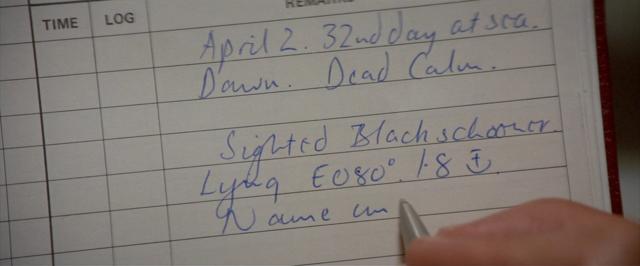 REMARKS
TIME LOG
April 2. 32nd day at sea.
Dawn. Dead Calm.
Sighted Black schooner.
Lying E080°. 1.8
Name un